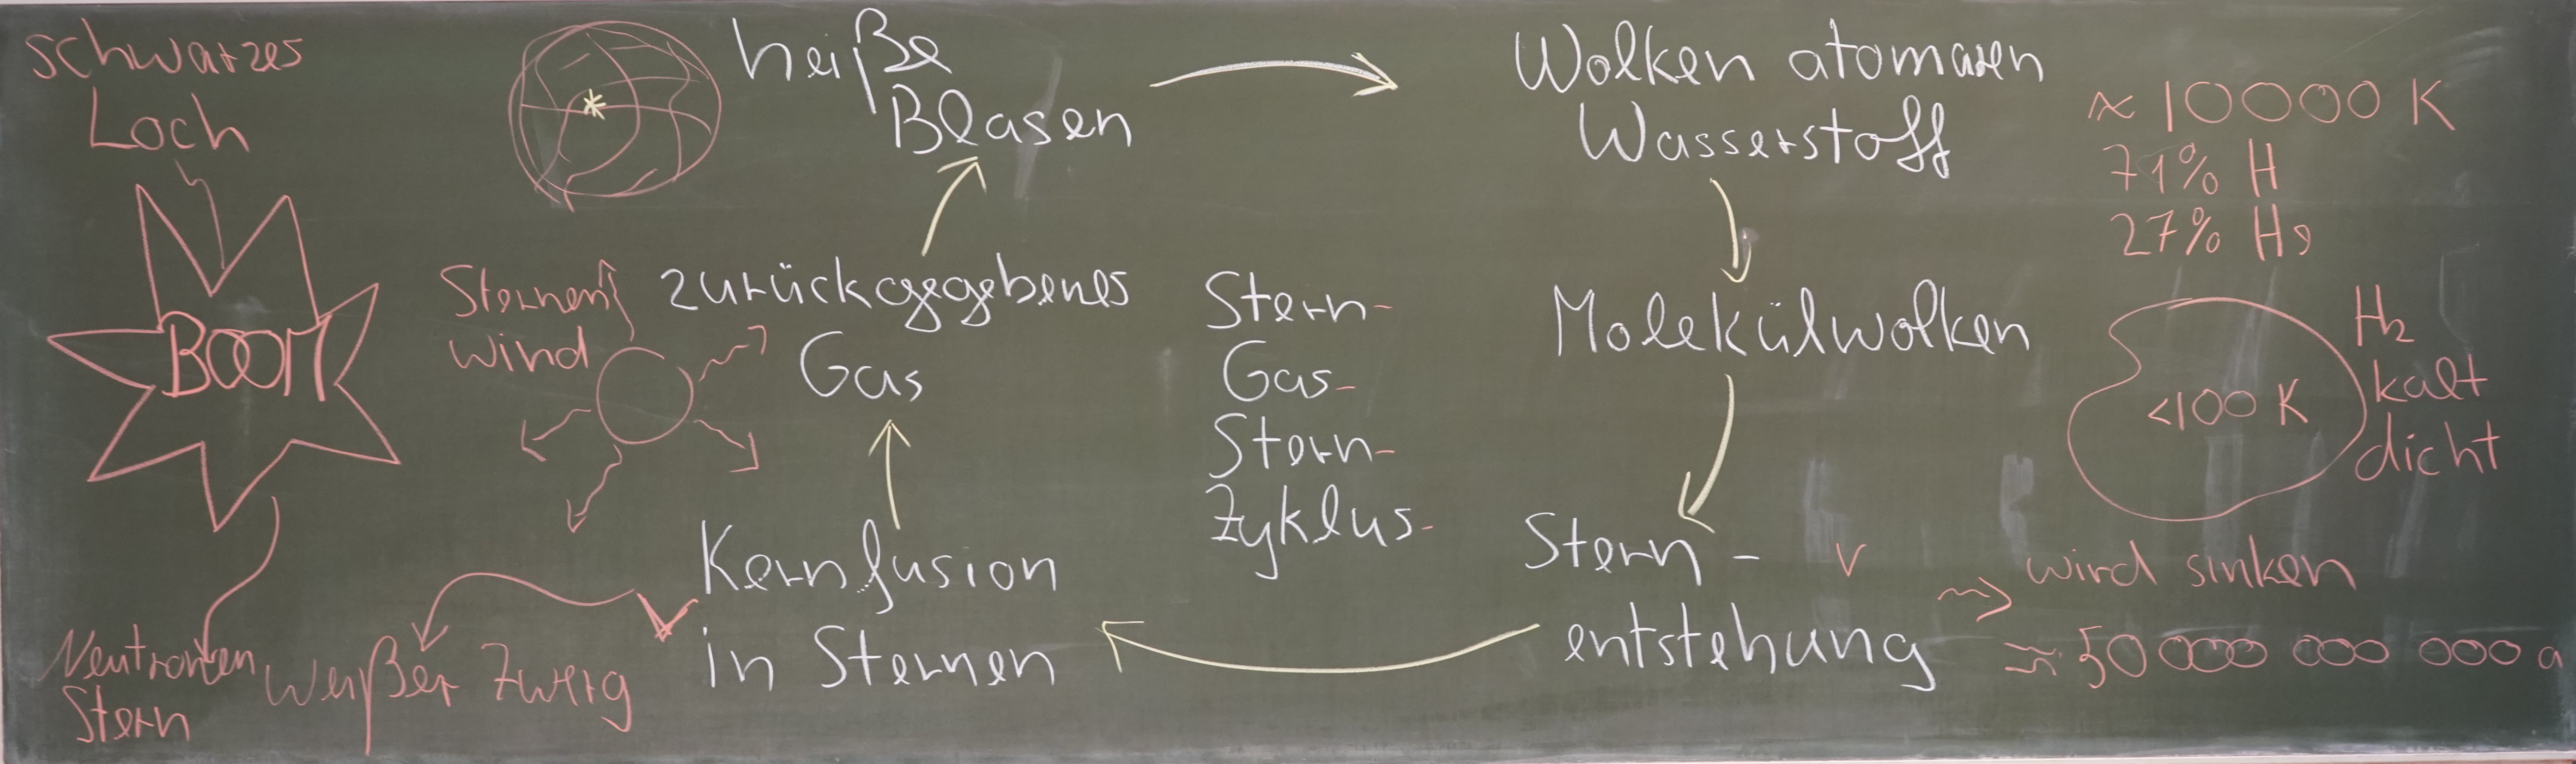 schwarzes
Loch
BOOM
Neutronen
Stern
weißer Zwerg
Sternen
wind
heiße
Blasen
zurückgegebenes
Gas
Kernfusion
in Sternen
Stern-
Gas-
Stern-
Zyklus-
Wolken atomaren
Wasserstoff
≈ 10000 K
71% H
27% He
Molekülwolken
<100 K
H2
kalt
dicht
Stern-
entstehung
wird sinken